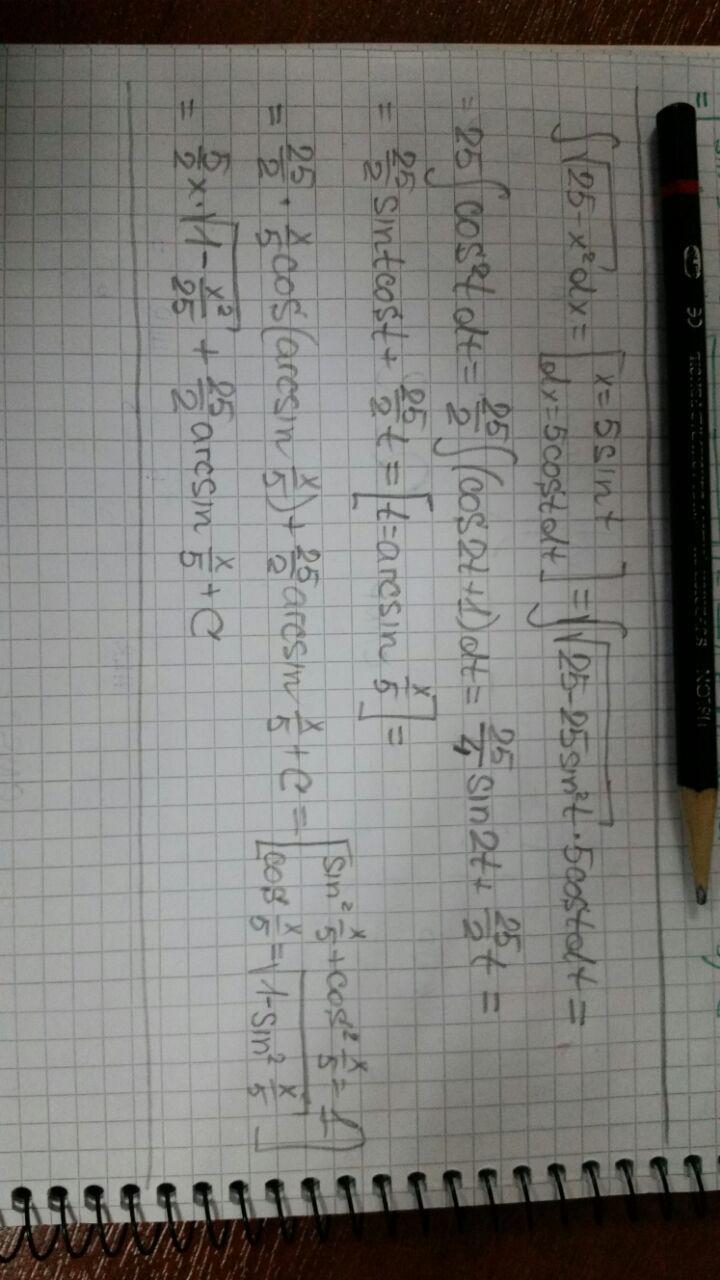 ∫√(25-x²) dx = [x = 5sin t
dx = 5cost dt] = ∫√(25-25sin²t) · 5cost dt =
= 25∫cos²t dt = 25/2 ∫(cos2t+1)dt = 25/4 sin2t + 25/2 t =
= 25/2 sintcost + 25/2 t = [t = arcsin x/5] =
= 25/2 · x/5 cos(arcsin x/5) + 25/2 arcsin x/5 + C = [sin² x/5 + cos² x/5 = 1
cos x/5 = √(1-sin² x/5)]
= 5/2 x · √(1 - x²/25) + 25/2 arcsin x/5 + C